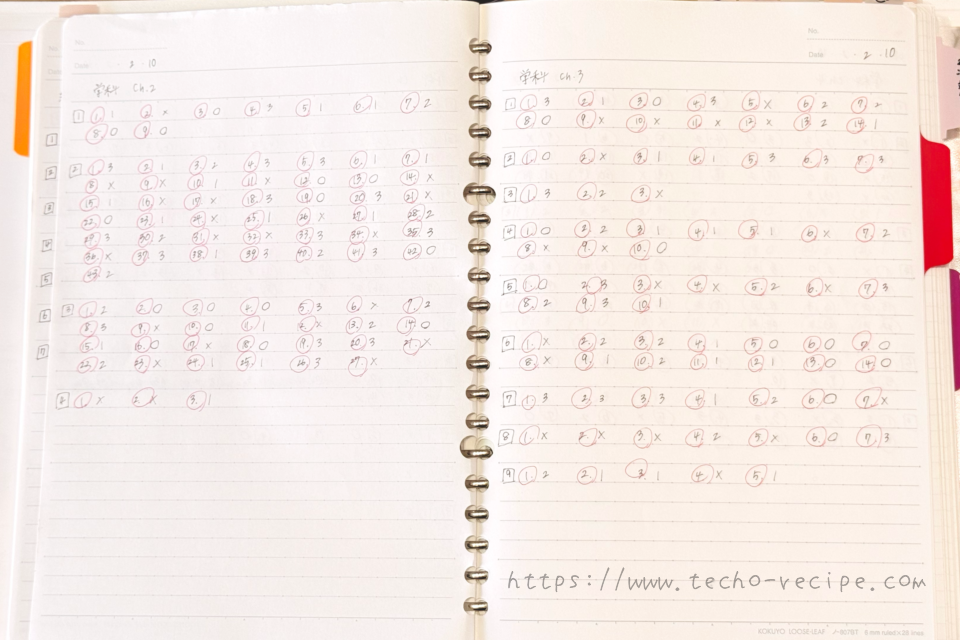 No.
Date 2・10
学科 Ch.2
1 ① 1 ② × ③ 0 ④ 3 ⑤ 1 ⑥ 1 ⑦ 2
⑧ 0 ⑨ 0
2 ① 3 ② 1 ③ 2 ④ 3 ⑤ 3 ⑥ 1 ⑦ 1
⑧ × ⑨ × ⑩ 1 ⑪ × ⑫ 0 ⑬ 0 ⑭ ×
⑮ 1 ⑯ × ⑰ × ⑱ 3 ⑲ 0 ⑳ 3 ㉑ ×
㉒ 0 ㉓ 1 ㉔ × ㉕ 1 ㉖ × ㉗ 1 ㉘ 2
㉙ 3 ㉚ 2 ㉛ × ㉜ × ㉝ 3 ㉞ × ㉟ 3
㊱ × ㊲ 3 ㊳ 1 ㊴ 3 ㊵ 2 ㊶ 3 ㊷ 0
㊸ 2
3 ① 2 ② 0 ③ 0 ④ 0 ⑤ 3 ⑥ × ⑦ 2
⑧ 3 ⑨ × ⑩ 0 ⑪ 1 ⑫ × ⑬ 2 ⑭ 0
⑮ 1 ⑯ 0 ⑰ × ⑱ 0 ⑲ 3 ⑳ 3 ㉑ ×
㉒ 2 ㉓ × ㉔ 1 ㉕ 1 ㉖ 3 ㉗ ×
① × ② × ③ 1
No.
Date 2・10
学科 Ch.3
1 ① 3 ② 1 ③ 0 ④ 3 ⑤ × ⑥ 2 ⑦ 2
⑧ 0 ⑨ × ⑩ × ⑪ × ⑫ × ⑬ 2 ⑭ 1
2 ① 0 ② × ③ 1 ④ 1 ⑤ 3 ⑥ 3 ⑦ 3
3 ① 3 ② 2 ③ ×
4 ① 0 ② 2 ③ 1 ④ 1 ⑤ 1 ⑥ × ⑦ 2
⑧ × ⑨ × ⑩ 0
5 ① 0 ② 3 ③ × ④ × ⑤ 2 ⑥ × ⑦ 3
⑧ 2 ⑨ 3 ⑩ 1
6 ① × ② 2 ③ 2 ④ 1 ⑤ 0 ⑥ 0 ⑦ 0
⑧ × ⑨ 1 ⑩ 2 ⑪ 1 ⑫ 1 ⑬ 0 ⑭ 0
7 ① 3 ② 3 ③ 3 ④ 1 ⑤ 2 ⑥ 0 ⑦ ×
8 ① × ② × ③ × ④ 2 ⑤ × ⑥ 0 ⑦ 3
9 ① 2 ② 1 ③ 1 ④ × ⑤ 1
https://www.techo-recipe.com
KOKUYO LOOSE-LEAF 6 mm ruled